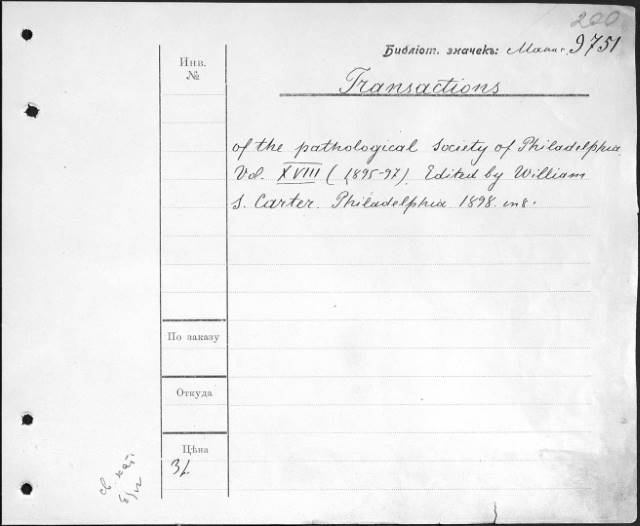 200
Библіот. значекъ: 9751
Инв.
№
Transactions
of the pathological Society of Philadelphia
Vol. XVIII (1895-97). Edited by William
S. Carter. Philadelphia 1898. in 8.
По заказу
Откуда
Цѣна